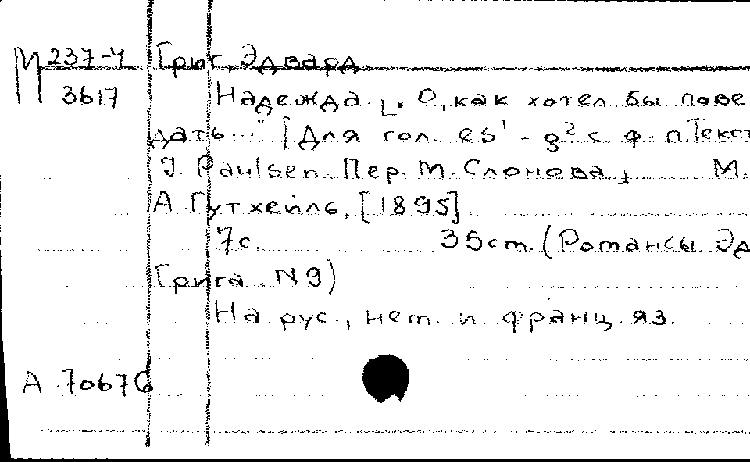 М 237-4 Григ, Эдвард
3617 Надежда. „О, как хотел бы пове
дать..." [Для гол. es¹-g² с ф.-п. Текст
J. Paulsen. Пер. М. Слонова, М.
А. Гутхейль, [1895]
7с. 35 cm. (Романсы Эд
Грига. №9)
На рус., нем. и франц. яз.
А 70676